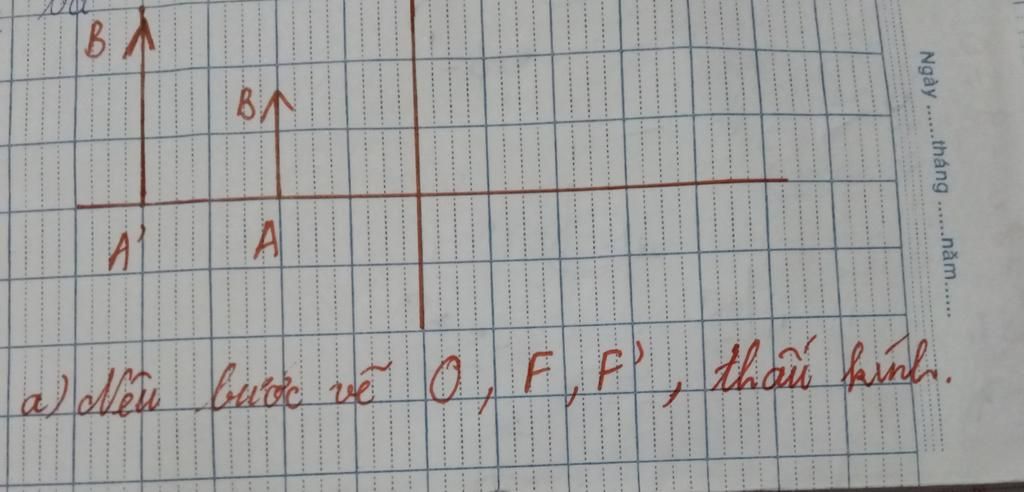 B
B
A' A
a) Nêu bước vẽ O, F, F', thấu kính.
Ngày......tháng......năm......